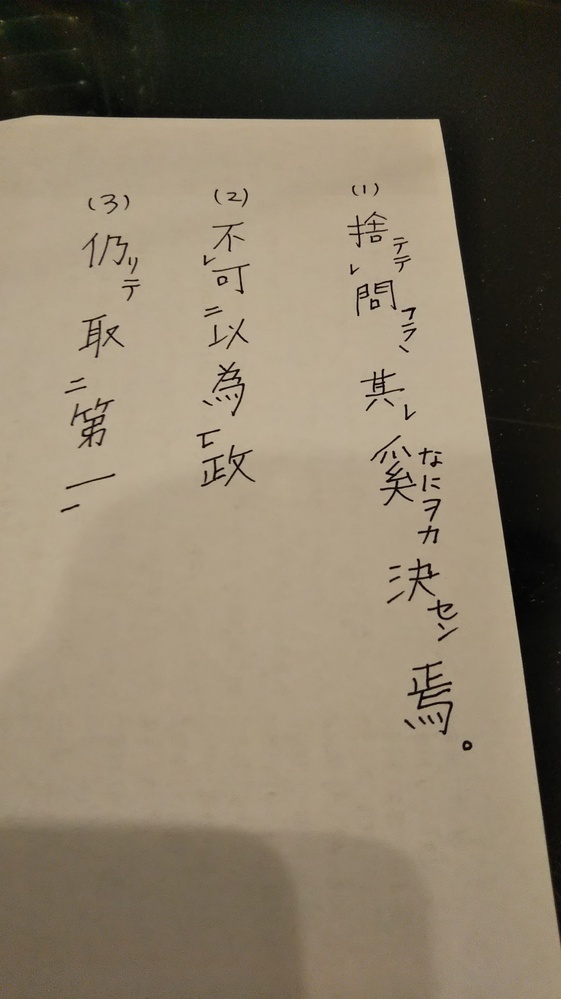 (1) 捨テテレ問フヲ、其レ奚なにヲカ決セン焉。
(2) 不レ可二以為一レ政
(3) 仍リテ取二第一一